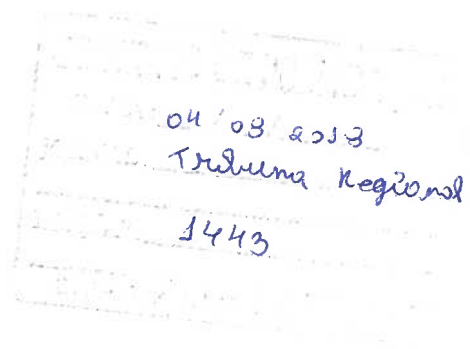 04 09 2013
Tribuna Regional
1443